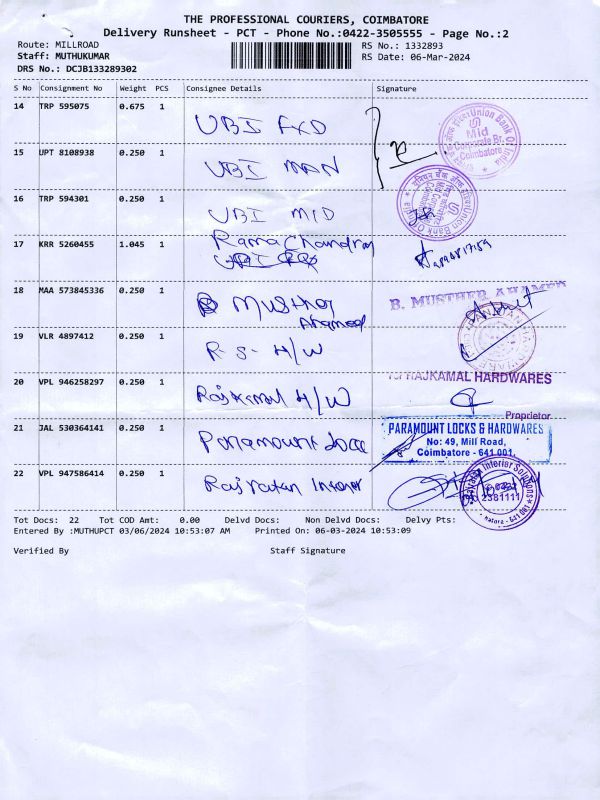 THE PROFESSIONAL COURIERS, COIMBATORE
Delivery Runsheet - PCT - Phone No.:0422-3505555 - Page No.:2
Route: MILLROAD RS No.: 1332893
Staff: MUTHUKUMAR RS Date: 06-Mar-2024
DRS No.: DCJB133289302
S No Consignment No Weight PCS Consignee Details Signature
14 TRP 595075 0.675 1 UBI FXD
Union Bank Of India
Mid Corporate Br.
Coimbatore
15 UPT 8108938 0.250 1 UBI MAN
16 TRP 594301 0.250 1 UBI MID
17 KRR 5260455 1.045 1 Rama Chandran
18 MAA 573845336 0.250 1 B Musther Ahamed
B. MUSTHER AHAMED
19 VLR 4897412 0.250 1 R-S- H/W
20 VPL 946258297 0.250 1 Rajkamal H/W
For RAJKAMAL HARDWARES
Proprietor
21 JAL 530364141 0.250 1 Paramount Loca
PARAMOUNT LOCKS & HARDWARES
No: 49, Mill Road,
Coimbatore - 641 001.
22 VPL 947586414 0.250 1 Rajratan Interior
Interior Solutions
2381111
641 001
Tot Docs: 22 Tot COD Amt: 0.00 Delvd Docs: Non Delvd Docs: Delvy Pts:
Entered By :MUTHUPCT 03/06/2024 10:53:07 AM Printed On: 06-03-2024 10:53:09
Verified By Staff Signature